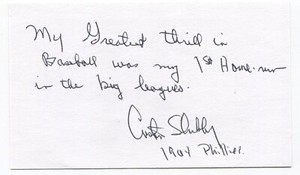 My Greatest thrill in
Baseball was my 1st Home-run
in the big leagues.
Phillies